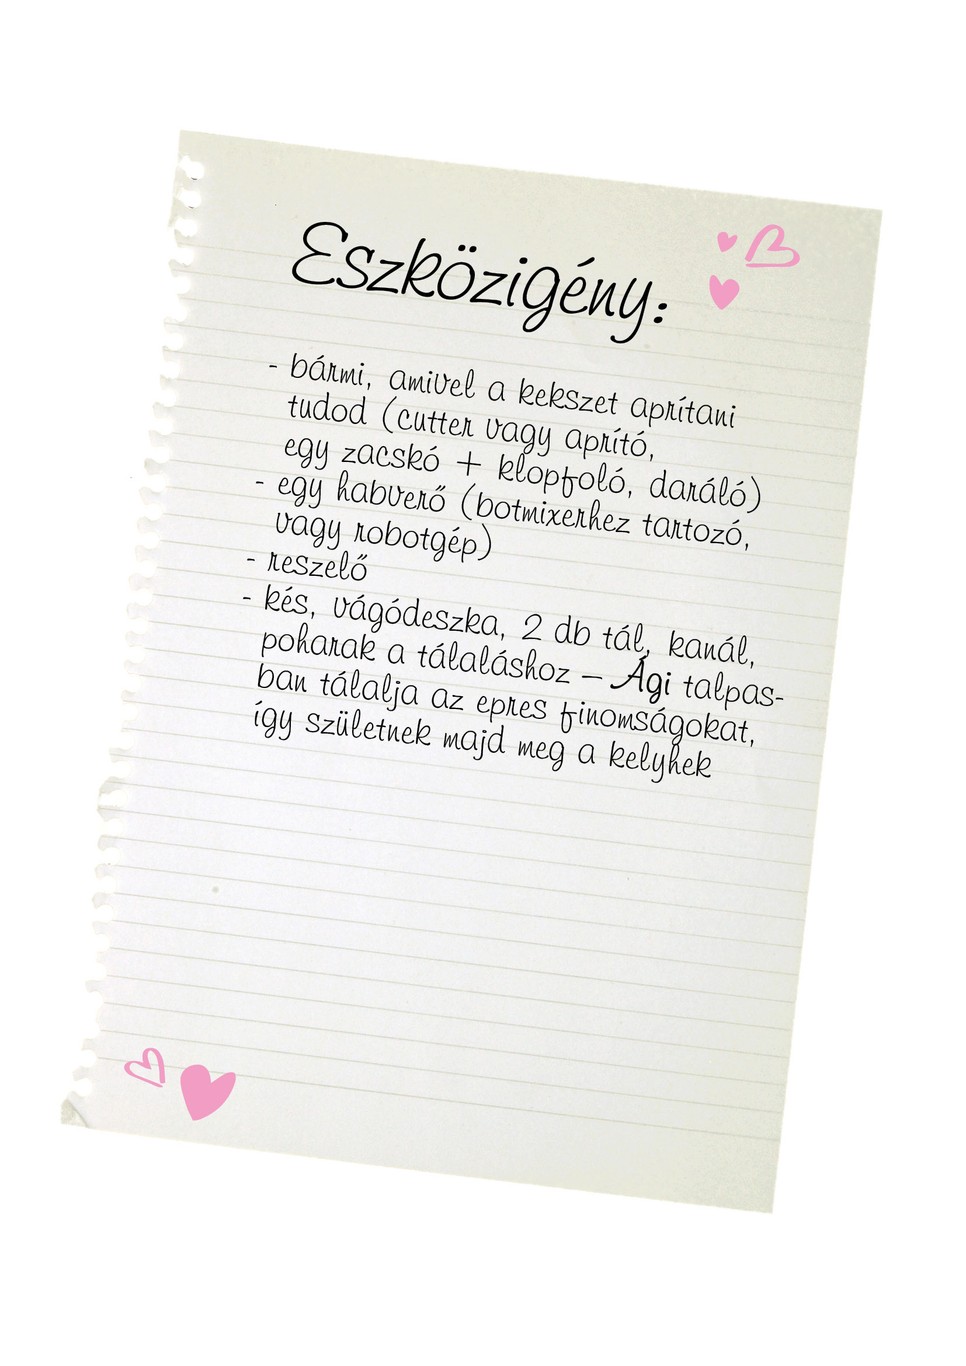 Eszközigény:
- bármi, amivel a kekszet aprítani
tudod (cutter vagy aprító,
egy zacskó + klopfoló, daráló)
- egy habverő (botmixerhez tartozó,
vagy robotgép)
- reszelő
- kés, vágódeszka, 2 db tál, kanál,
poharak a tálaláshoz – Ági talpas-
ban tálalja az epres finomságokat,
így születnek majd meg a kelyhek